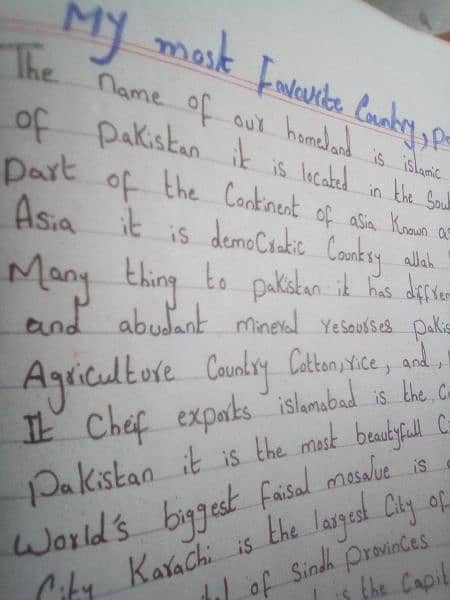 My most Favourite Country, Pa
The Name of our homeland is islamic
of pakistan it is located in the Sou
Part of the Continent of asia Known as
Asia it is democratic Country allah
Many thing to pakistan it has differen
and abudant mineral resourses pakis
Agriculture Country Cotton, rice, and,
It Cheif exports islamabad is the C
Pakistan it is the most beautyfull C
World's biggest faisal mosque is
City Karachi is the largest City of
of Sindh Provinces
is the Capit